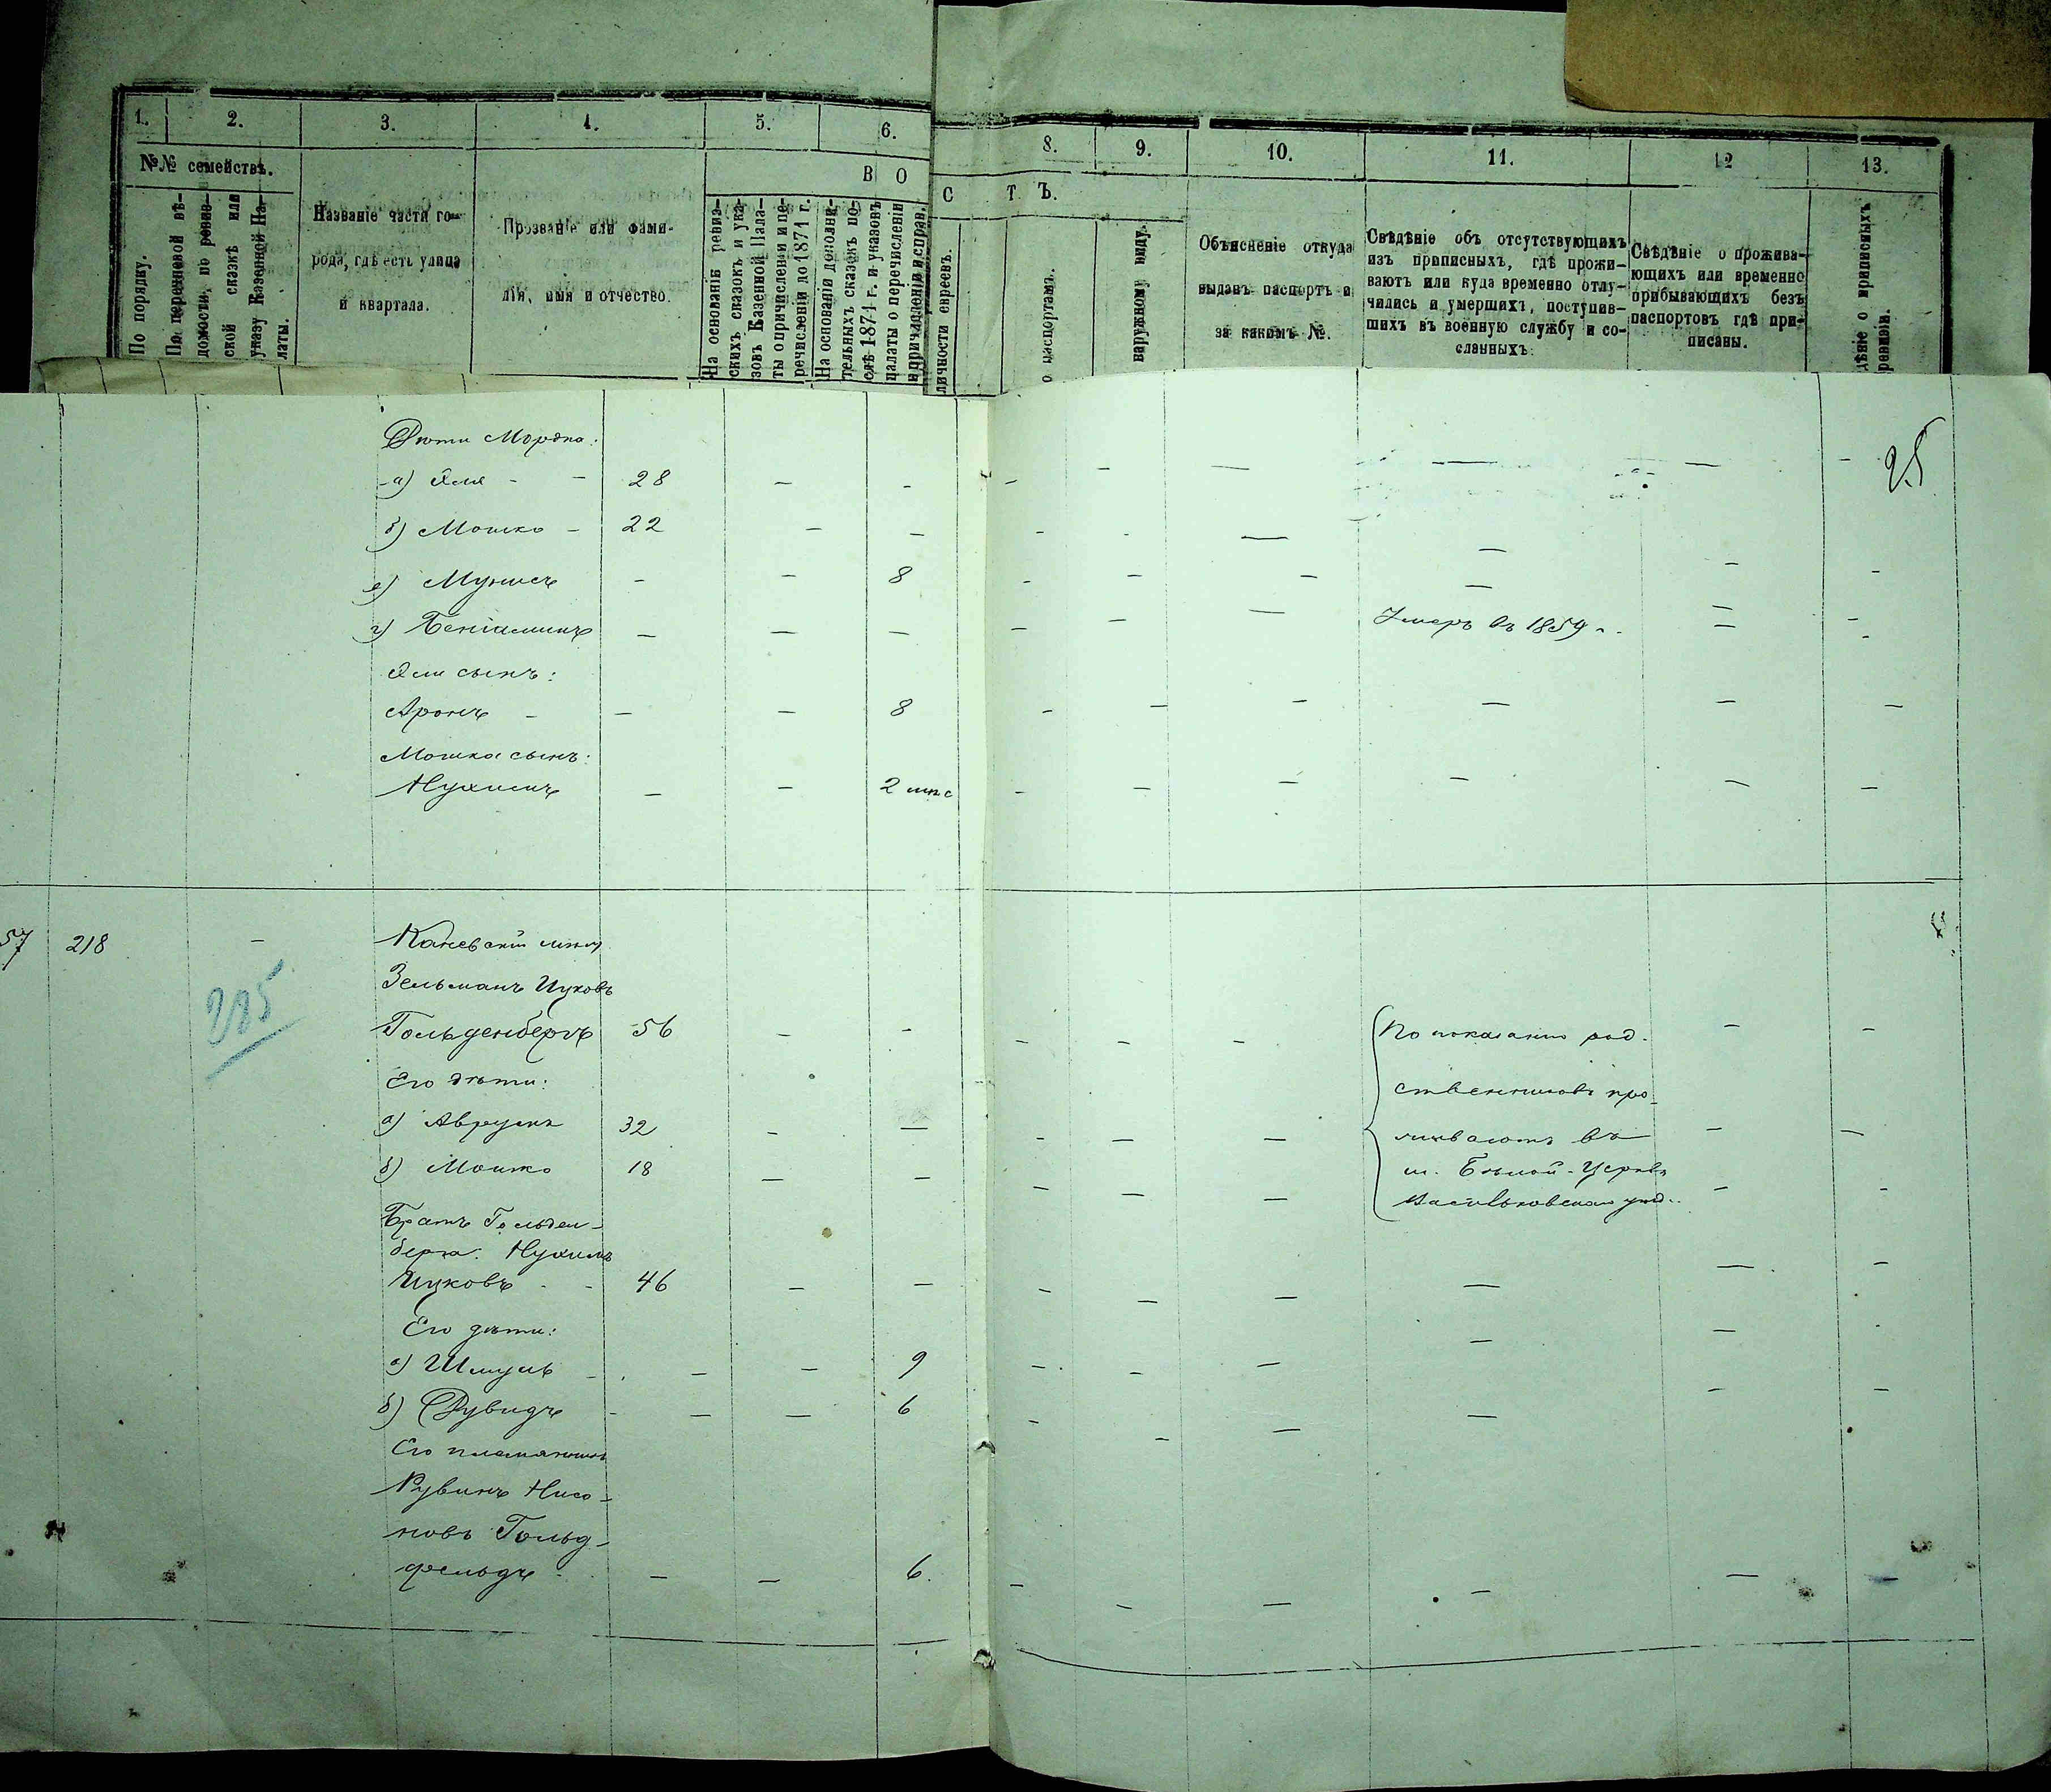 1. 2. 3. 4. 5. 6. 8. 9. 10. 11. 12 13.
№№ семействъ.
В О С Т Ъ.
По порядку.
По перечневой вѣ-
домости, по ревиз-
ской сказкѣ или
указу Казенной Па-
латы.
Названіе части го-
рода, гдѣ есть улица
и квартала.
Прозваніе или фами-
лія, имя и отчество.
На основаніи ревиз-
скихъ сказокъ и ука-
зовъ Казенной Пала-
ты о причисленіи и пе-
речисленіи до 1874 г.
На основаніи дополни-
тельныхъ сказокъ по-
слѣ 1874 г. и указовъ
палаты о перечисленіи
и причисленіи и справ.
личности евреевъ.
о паспортамъ.
наружному виду.
Объясненіе откуда
выданъ паспортъ и
за какимъ №.
Свѣдѣніе объ отсутствующихъ
изъ приписныхъ, гдѣ прожи-
ваютъ или куда временно отлу-
чились и умершихъ, поступив-
шихъ въ военную службу и со-
сланныхъ.
Свѣдѣніе о прожива-
ющихъ или временно
прибывающихъ безъ
паспортовъ гдѣ при-
писаны.
дѣніе о приписныхъ
ревизіи.
25
Дѣти Мордка:
а) Эля - - 28 — -
б) Мошко - 22 — —
в) - — 8
г) Беніаминъ — — — Умеръ въ 1859 г.
Эли сынъ:
Аронъ - — — 8
Мошка сынъ:
Нухимъ — — 2 мѣс
57 218 — Каневскій мѣщ.
Зельманъ Ицковъ
225
Гольденбергъ 56 — -
Его дѣти:
а) Аврумъ 32 - —
б) Мошко 18 — —
По показанію род-
ственниковъ про-
живаютъ въ
м. Бѣлой-Церкви
Васильковскаго уѣзд.
Братъ Гольден-
берга. Нухимъ
Ицковъ - - 46 — —
Его дѣти:
а) Шмуль - — — 9
б) Дувидъ - — — 6
Его племянникъ
Рувинъ Нисо-
новъ Гольд-
фельдъ - — — 6.